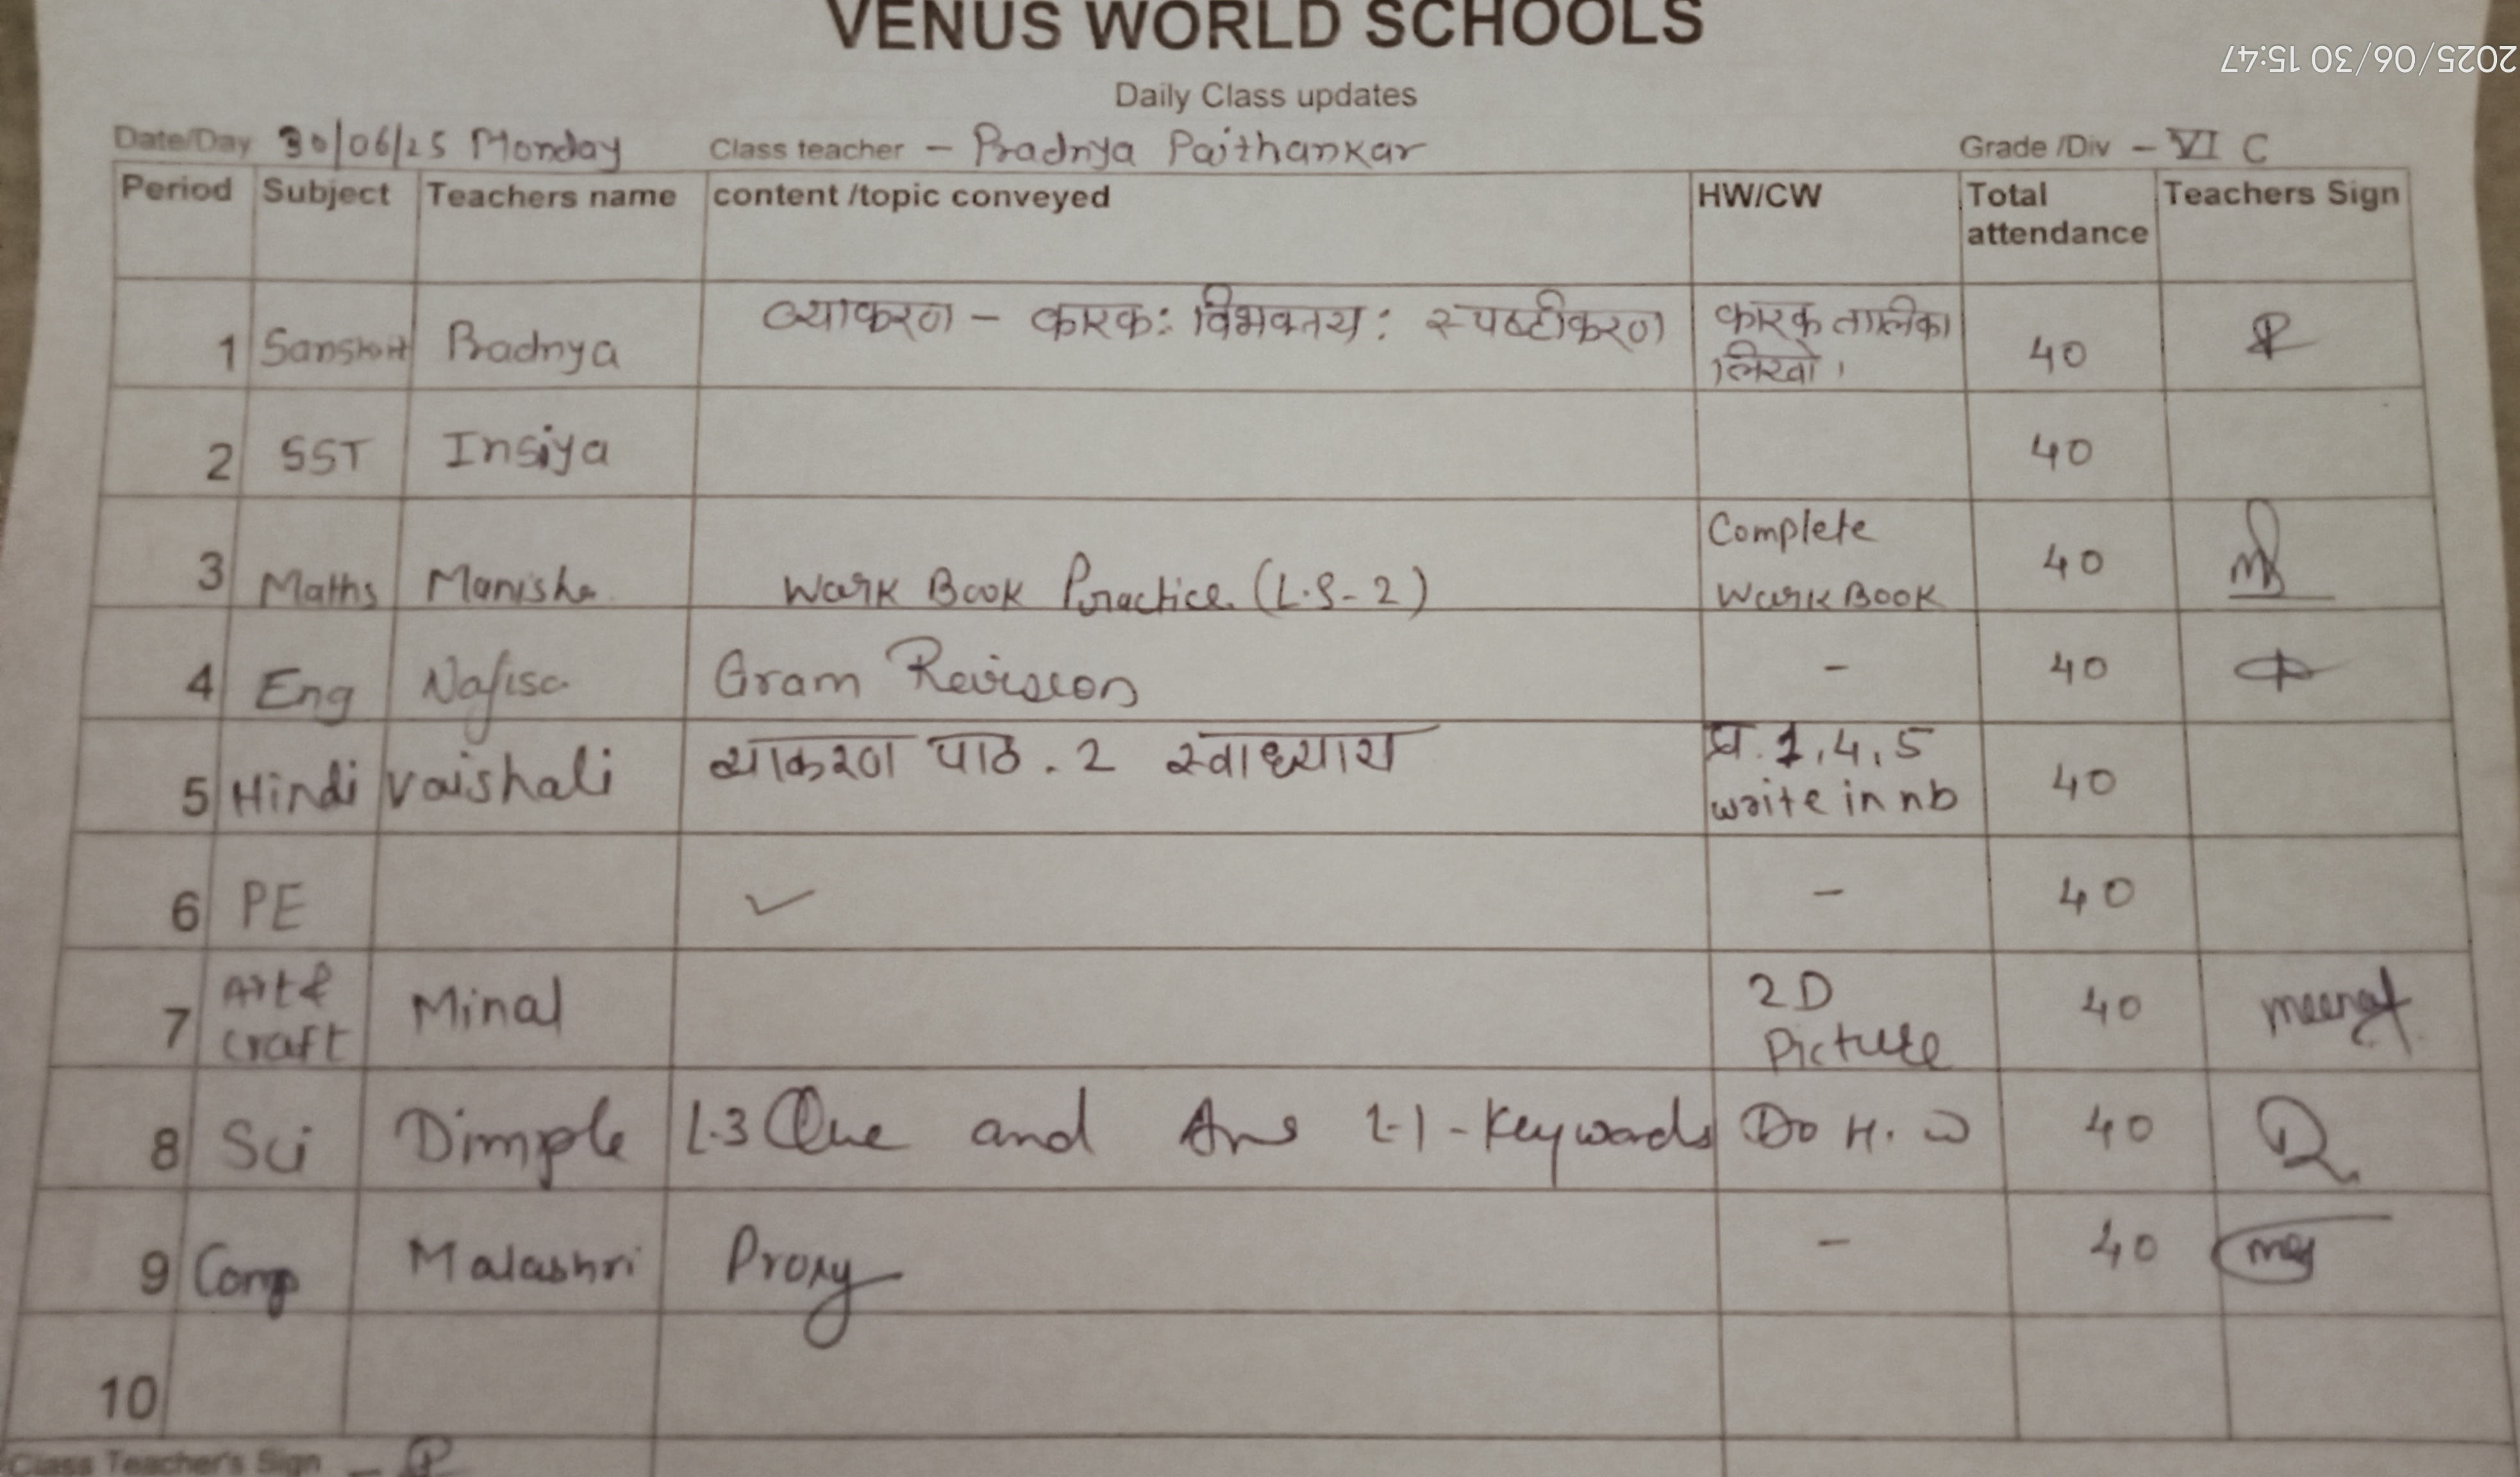 VENUS WORLD SCHOOLS
2025/06/30 15:47
Daily Class updates
Date/Day 30/06/25 Monday Class teacher - Pradnya Paithankar Grade /Div - VI C
Period Subject Teachers name content /topic conveyed HW/CW Total attendance Teachers Sign
1 Sanskrit Pradnya व्याकरण - कारक: विभक्तय: स्पष्टीकरण कारक तालिका लिखो। 40
2 SST Insiya 40
3 Maths Manisha Work Book Practice. (L.S-2) Complete Work Book 40
4 Eng Nafisa Gram Revision - 40
5 Hindi Vaishali व्याकरण पाठ. 2 स्वाध्याय प्र. 1, 4, 5 write in nb 40
6 PE ✓ - 40
7 Art & Craft Minal 2D Picture 40
8 Sci Dimple L.3 Que and Ans L-1 - Keywords Do H. W 40
9 Comp Malashri Proxy - 40
10
Class Teacher's Sign -